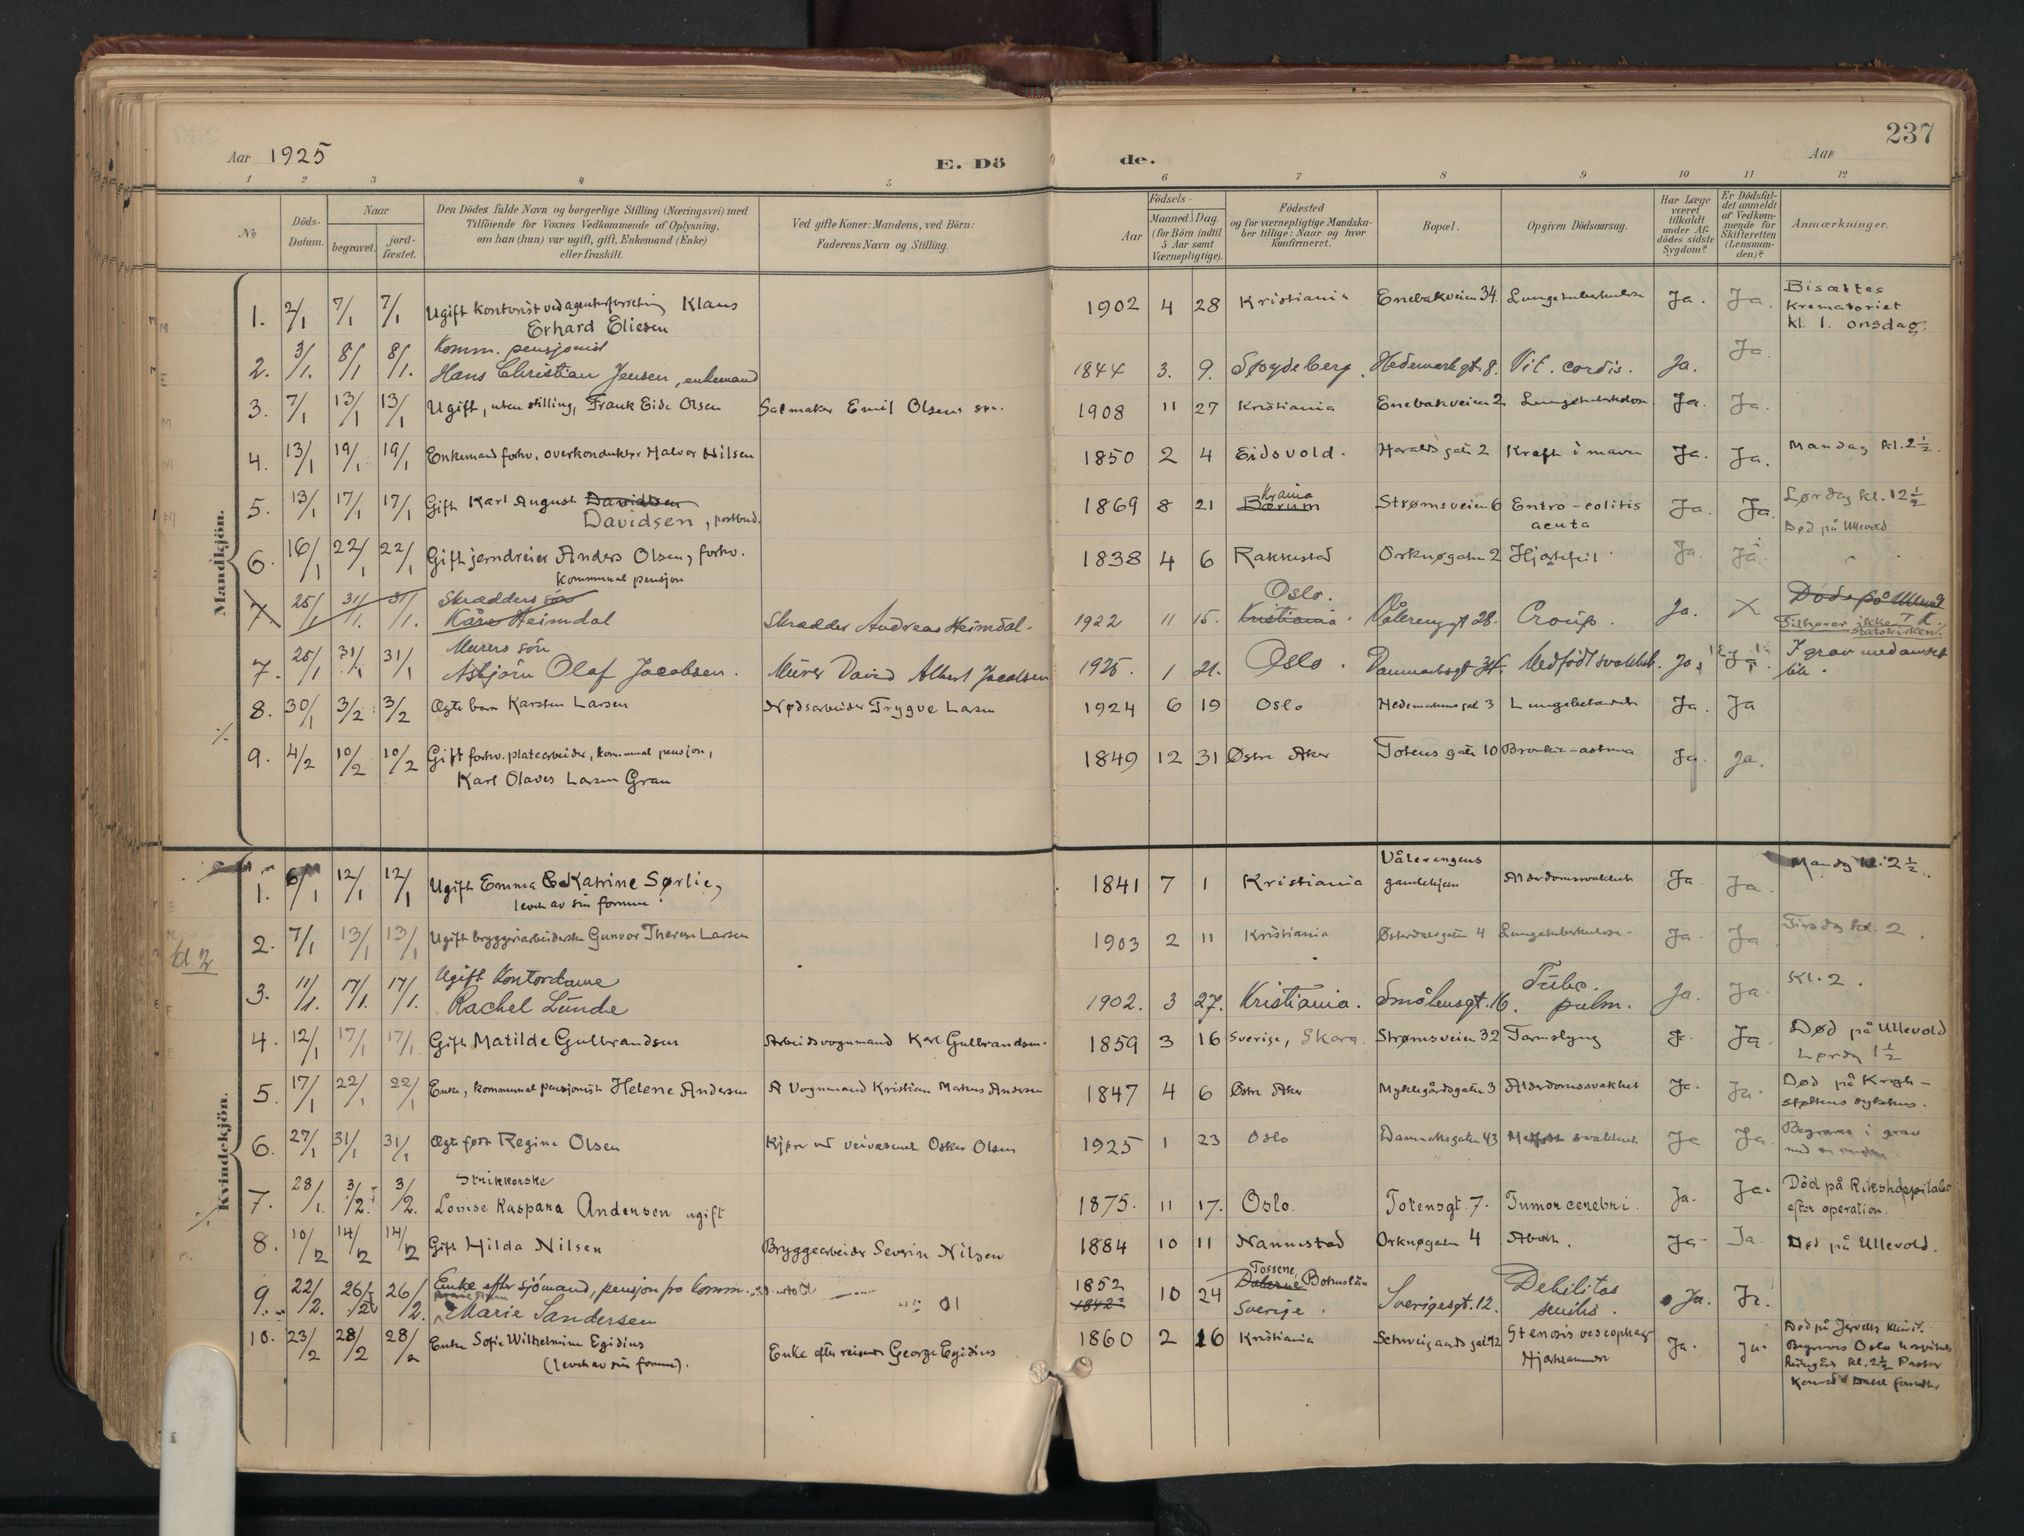 237
Aar 1925
E. Dö
de.
Aar
1 2 3 4 5 6 7 8 9 10 11 12
№
Döds-
Datum.
Naar
begravet.
jord-
fæstet.
Den Dödes fulde Navn og borgerlige Stilling (Næringsvei) med
Tilföiende for Voxnes Vedkommende af Oplysning,
om han (hun) var ugift, gift, Enkemand (Enke)
eller fraskilt.
Ved gifte Koner: Mandens, ved Börn:
Faderens Navn og Stilling.
Aar
Födsels-
Maaned. Dag.
(for Börn indtil
5 Aar samt
Værnepligtige).
Födested
og for værnepligtige Mandskaber tillige: Naar og hvor
Konfirmeret.
Bopæl.
Opgiven Dödsaarsag.
Har Læge
været
tilkaldt
under Afdödes sidste
Sygdom?
Er Dödsfaldet anmeldt
af Vedkommende for
Skifteretten
(Lensmanden)?
Anmærkninger.
Mandkjön.
1. 2/1 7/1 7/1 Ugift kontorist ved agenturforretning Klaus
Erhard Eliesen
1902 4 28 Kristiania Enebakveien 34 Lungetuberkulose Ja. Ja.
Bisættes
Krematoriet
kl. 1. onsdag.
2. 3/1. 8/1 8/1. Komm. pensjonist
Hans Christian Jensen, enkemand
1844 3. 9. Spydeberg. Hedemarksgt. 8. Vit. cordis. Ja. Ja.
3. 7/1 13/1 13/1 Ugift, uten stilling, Frank Eide Olsen Salmaker Emil Olsens søn.
1908 11 27 Kristiania Enebakveien 2 Lungetuberkulose Ja. Ja.
4. 13/1 19/1 19/1 Enkemand forhv. overkonduktør Halvor Nilsen
1850 2 4 Eidsvold. Haralds gate 2 Kræft i maven Ja. Ja. Mandag kl. 2 1/2.
5. 13/1 17/1 17/1 Gift Karl August Davidsen
Davidsen, postbud.
1869 8 21 Krania
Bærum Strømsveien 6 Entro-colitis
acuta Ja. Ja. Lørdag kl. 12 1/2
Død på Ullevold
6. 16/1 22/1 22/1 Gift jerndreier Anders Olsen, forhv.
kommunal pensjon
1838 4 6 Rakkestad Orknøgaten 2 Hjertefeil Ja. Ja
7. 25/1 31/1. 31/1. Skrædders søn
Kåre Heimdal Skrædder Andreas Heimdal.
1922 11 15. Oslo.
Kristiania Vålerenggt 28. Croup. Ja. X Døde på Ullevål
Tilhører ikke
Statskirken.
7. 25/1 31/1 31/1 Murers søn
Asbjörn Olaf Jacobsen. Murer David Albert Jacobsen
1925. 1 21. Oslo. Danmarksgt 34. Medfödt svakhet. Ja. Ja. I grav med andet
lik.
8. 30/1 3/2 3/2 Ægte barn Karsten Larsen Nødsarbeider Trygve Larsen
1924 6 19 Oslo Hedemarkens gate 3 Lungebetændelse Ja. Ja
9. 4/2 10/2 10/2 Gift forhv. platearbeider, kommunal pensjon,
Karl Olaves Larsen Gran
1849 12 31 Østre Aker Totens gate 10 Bronkie-astma Ja Ja.
Kvindekjön.
1. 6/1 12/1 12/1 Ugift Emma Katrine Sørlie,
levet av sin formue.
1841 7 1 Kristiania Vålerengens
gamlehjem Alderdomssvakhet Ja. Ja. Mandag kl. 2 1/2.
2. 7/1 13/1 13/1 Ugift bryggeriarbeiderske Gunvor Therese Larsen
1903 2 11 Kristiania Østerdalsgaten 4 Lungetuberkulose Ja. Ja Tirsdag kl. 2.
kl 2
3. 11/1. 17/1. 17/1. Ugift Kontordame
Rachel Lunde
1902. 3 27. Kristiania. Smålensgt. 16. Tubc.
pulm. Ja. Ja. Kl. 2.
4. 12/1 17/1 17/1 Gift Matilde Gulbrandsen Arbeidsvognmand Karl Gulbrandsen.
1859 3 16 Sverige, Skara. Strømsveien 32 Tarmslyng Ja. Ja Død på Ullevold
Lørdag 1 1/2
5. 17/1 22/1 22/1 Enke, kommunal pensjonist Helene Andersen A Vognmand Kristian Markus Andersen
1847 4 6 Østre Aker Myklegårdsgaten 3 Alderdomssvakhet Ja. Ja. Død på Krogh-
støttens sykehus.
6. 27/1 31/1 31/1 Ægte født Regine Olsen Kjører ved veivæsenet Oskar Olsen
1925 1 23 Oslo Danmarksgaten 43 Medfødt svakhet Ja Ja. Begraves i grav
med en
7. 28/1. 3/2. 3/2. Strikkerske
Lovise Kaspara Andersen ugift
1875. 11 17. Oslo. Totensgt. 7. Tumor cerebri. Ja. Ja. Död på Rikshospitalet
efter operation.
8. 10/2 14/2 14/2 Gift Hilda Nilsen Bryggearbeider Severin Nilsen
1884 10 11 Nannestad Orknøgaten 4 Abort. Ja Ja. Død på Ullevold.
9. 22/2. 26/2 26/2. Enke efter sjömand, pensjon fra komm.
Marie Sandersen
1852
1842 10 24 Tossene, Bohuslän
Sverige. Sverigesgt. 12. Debilitas
senilis. Ja. Ja.
10. 23/2 28/2 28/2 Enke Sofie Wilhelmine Egidius
(levet av sin formue). Enke efter reisende George Egidius
1860 2 16 Kristiania Schweigaards gate 92 Stenosis oesophagi
Hjertelammelse Ja. Ja. Død på Jervells klinik.
Begraves Oslo hospitals
kirkegård kl. 2 1/2 Pastor
Konrad Dahl forretter